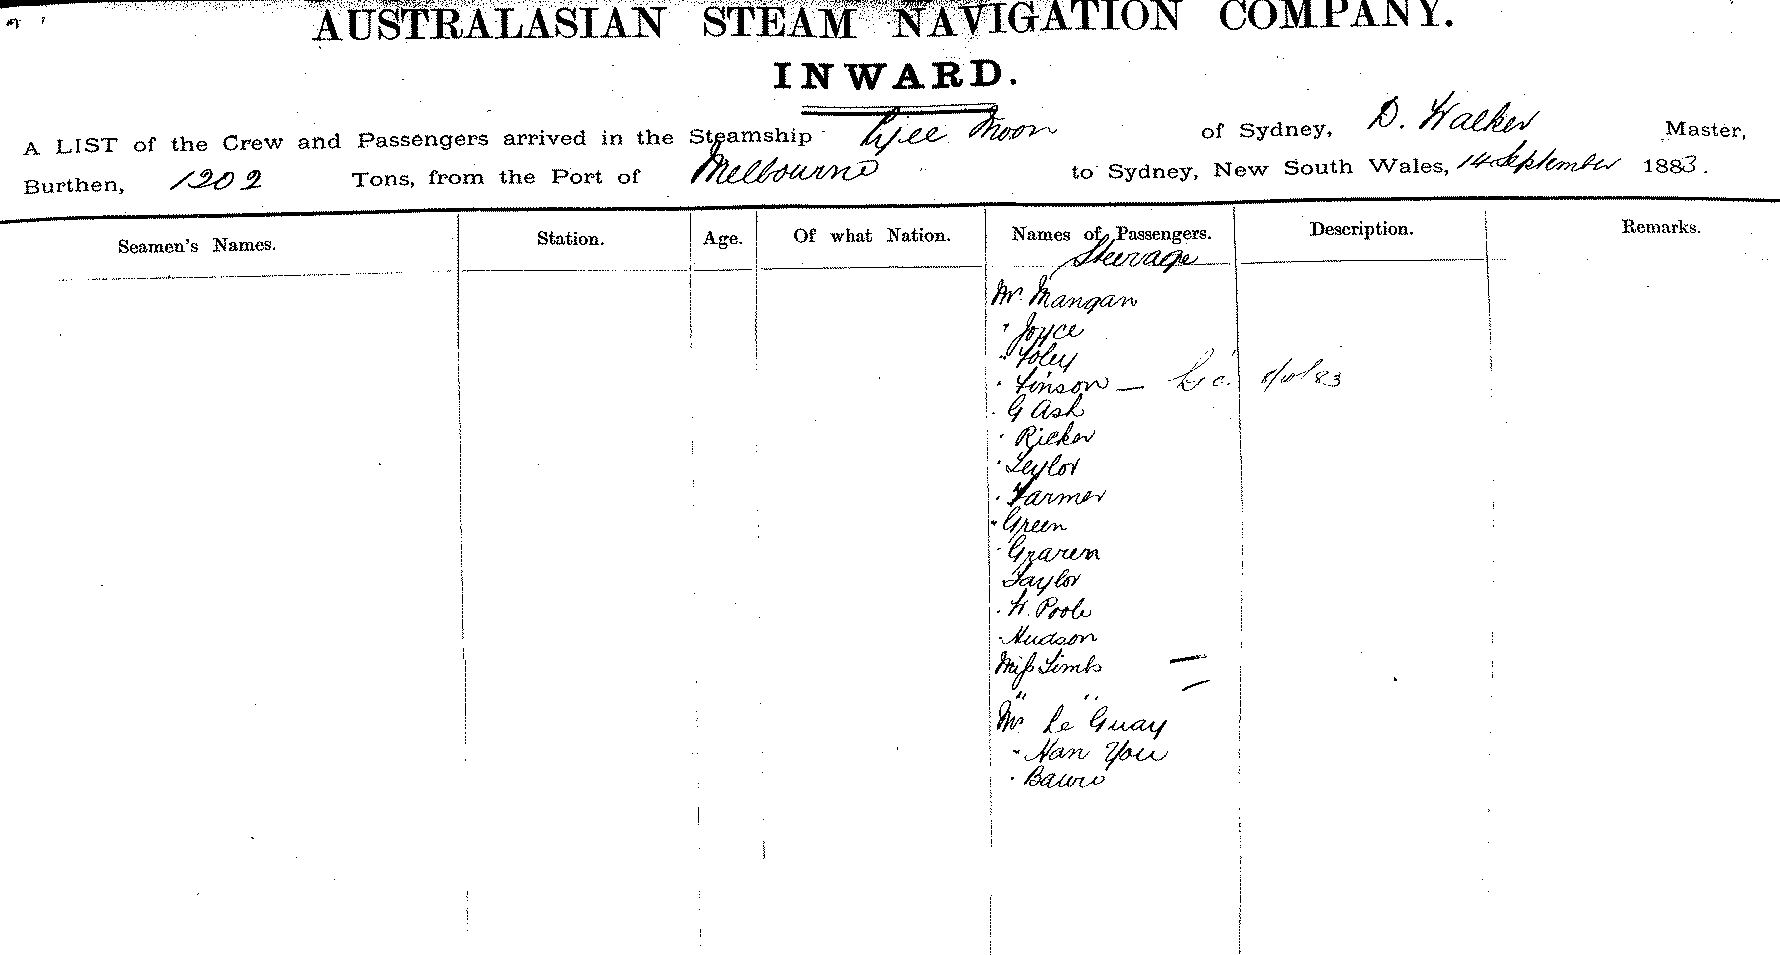 AUSTRALASIAN STEAM NAVIGATION COMPANY.
INWARD.
A LIST of the Crew and Passengers arrived in the Steamship Ly-ee Moon of Sydney, D. Walker Master,
Burthen, 1202 Tons, from the Port of Melbourne to Sydney, New South Wales, 14 September 1883.
Seamen's Names. Station. Age. Of what Nation. Names of Passengers. Description. Remarks.
Steerage
Mr. Mangan
" Joyce
" Foley
" Finson —
" G Ash
" Ricker
" Leylor
" Farmer
" Green
" Graren
Taylor
" W. Poole
" Hudson
Miss Limbs —
" " —
Mr Le Guay
" Han You
"